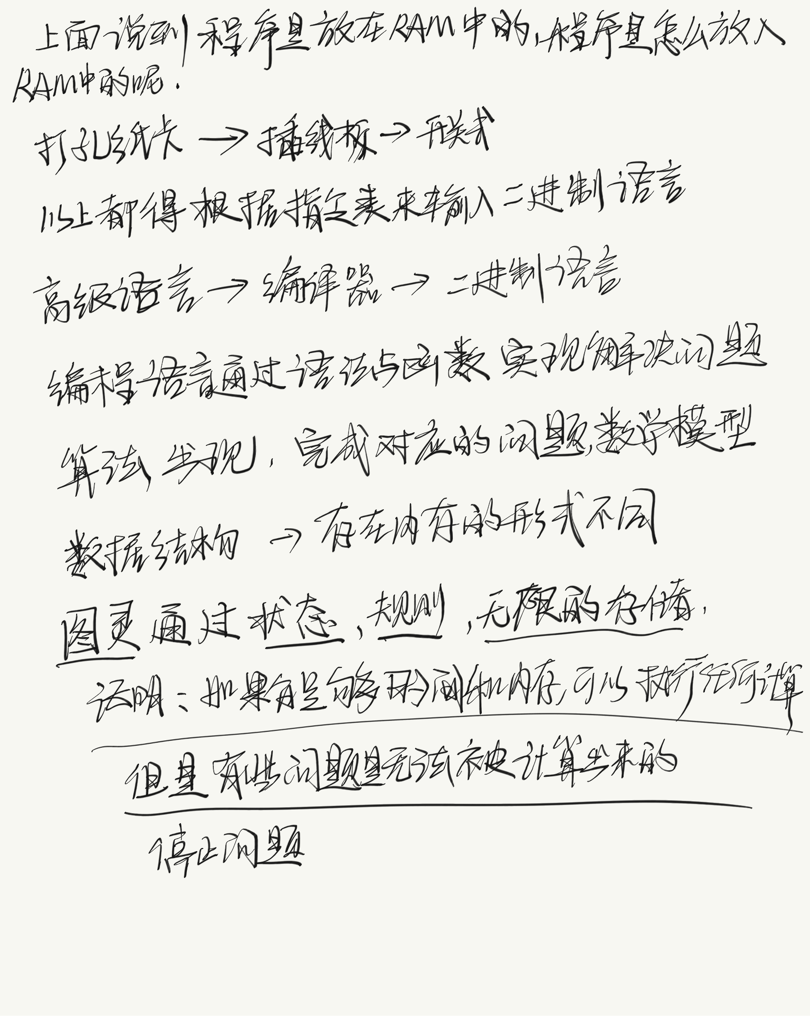 上面说到程序是放在RAM中的,程序是怎么放入
RAM中的呢.
打孔纸卡 → 插线板 → 开关式
以上都得根据指令表来输入二进制语言
高级语言 → 编译器 → 二进制语言
编程语言通过语法与函数实现解决问题
算法出现,完成对应的问题,数学模型
数据结构 → 存在内存的形式不同
图灵通过状态,规则,无限的存储,
证明:如果有足够时间和内存,可以执行任何计算
但是有些问题是无法被计算出来的
停止问题